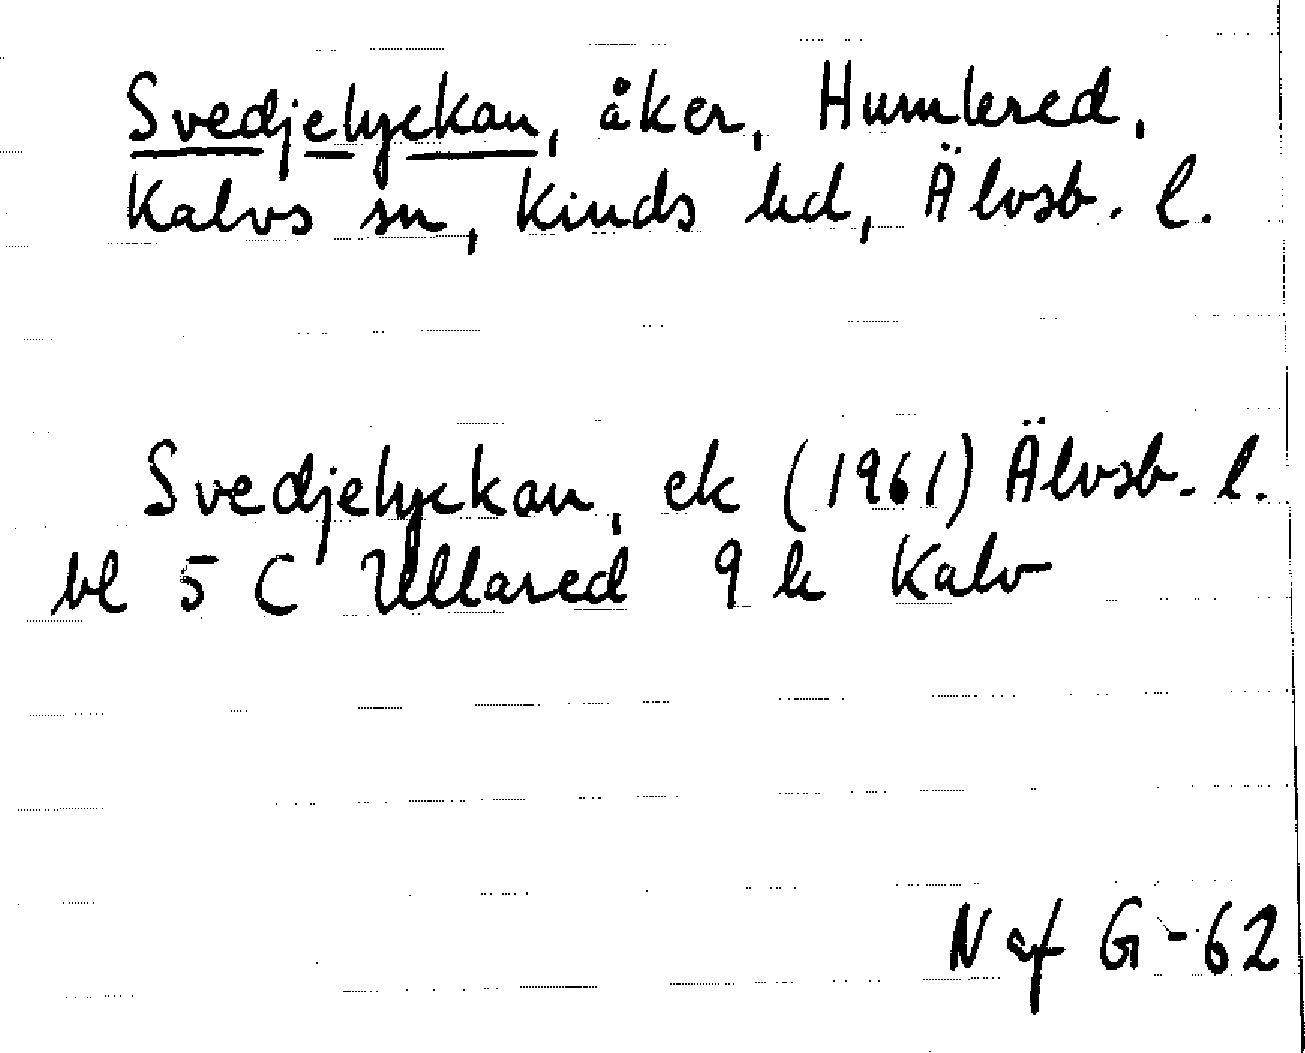 Svedjelyckan, åker, Humlered,
Kalvs sn, Kinds hd, Älvsb. l.
Svedjelyckan, ek (1961) Älvsb. l.
bl 5 C Ullared 9 h Kalv
N af G-62